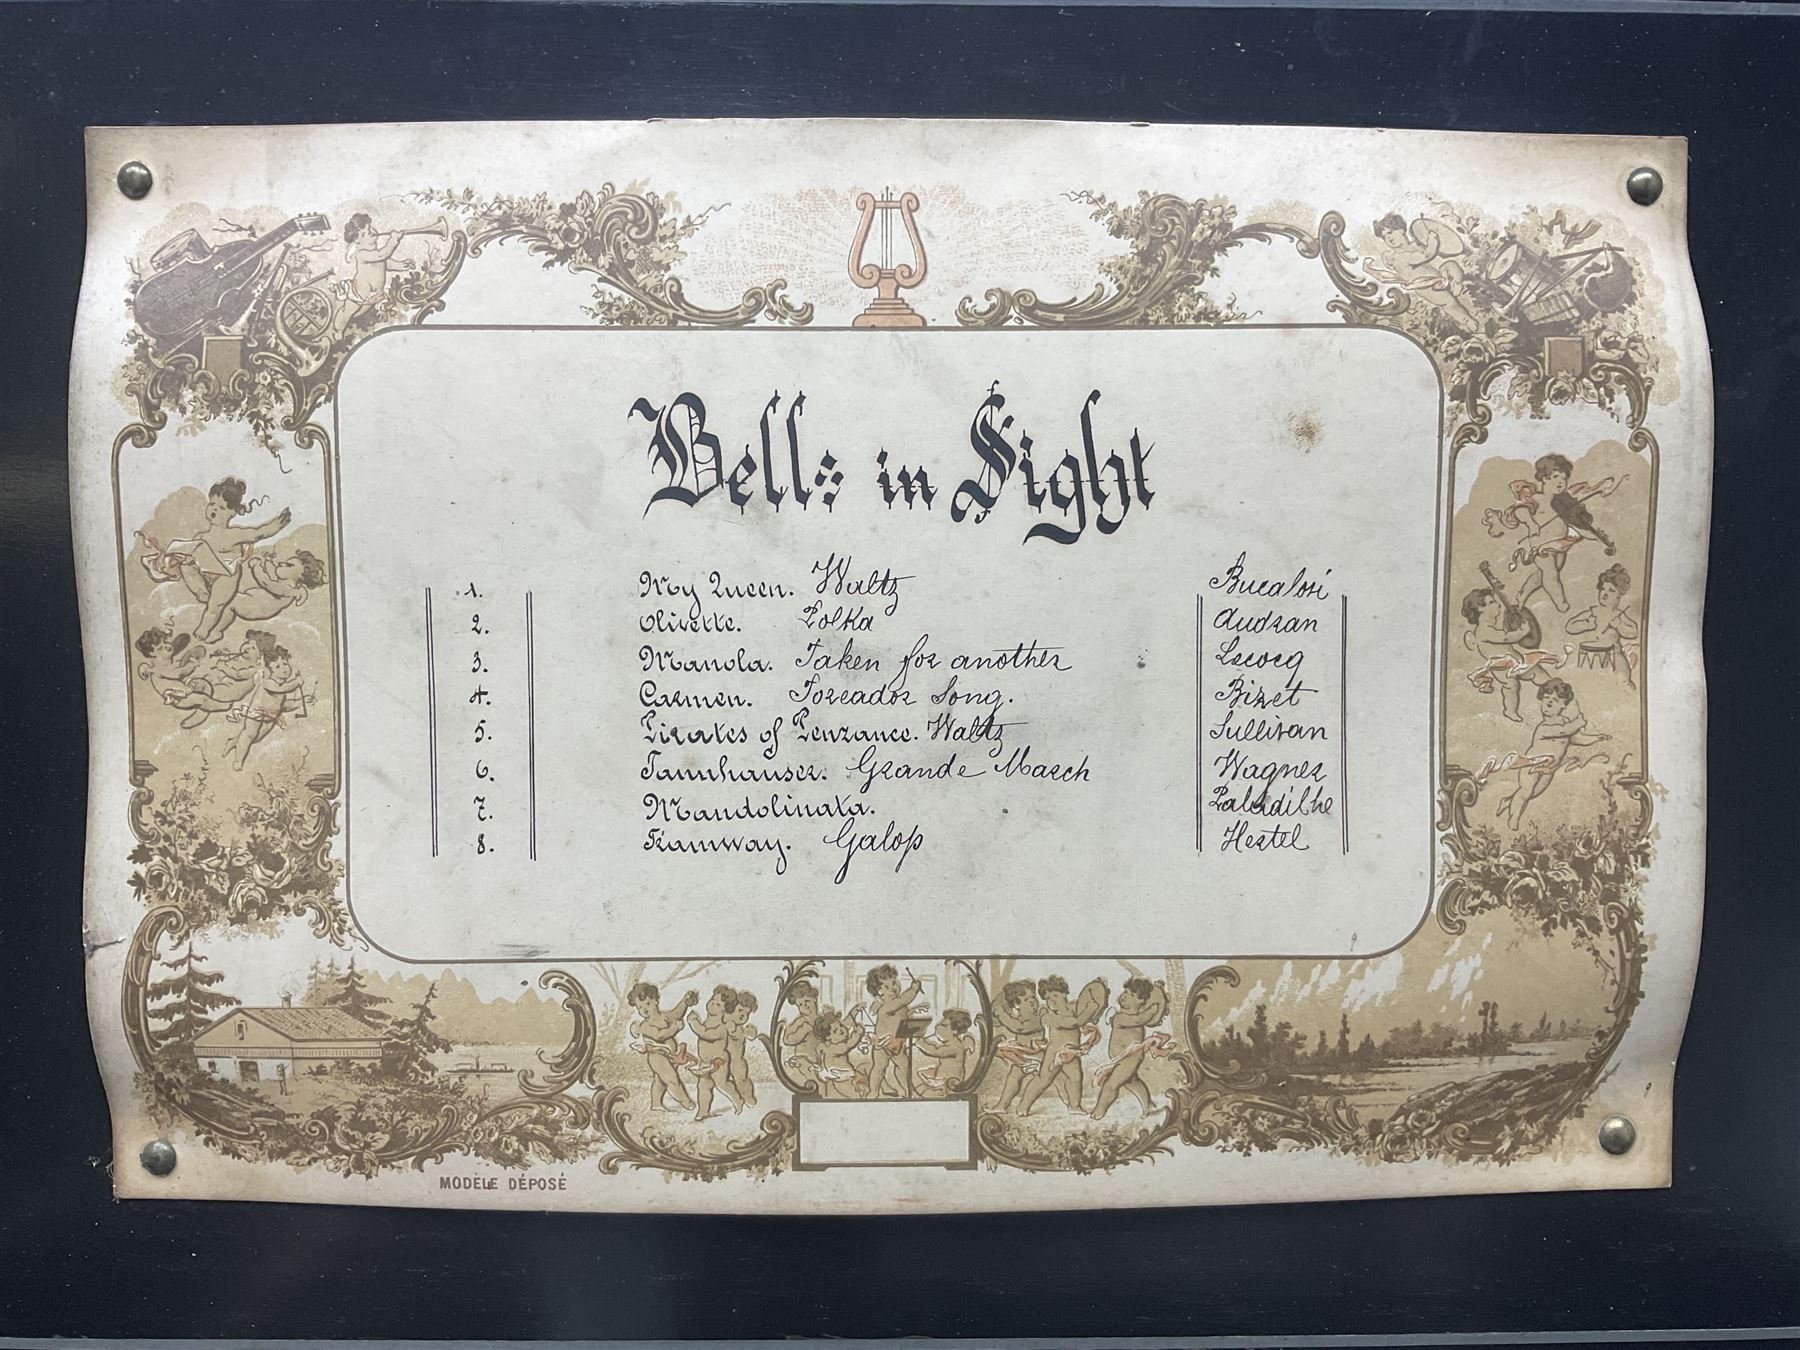 Bells in Sight
1. My Queen. Waltz Bucalosi
2. Olivette. Polka Audran
3. Manola. Taken for another Lecocq
4. Carmen. Toreador Song. Bizet
5. Pirates of Penzance. Waltz Sullivan
6. Tannhauser. Grande March Wagner
7. Mandolinata. Paladilhe
8. Tramway. Galop Hertel
MODÈLE DÉPOSÉ